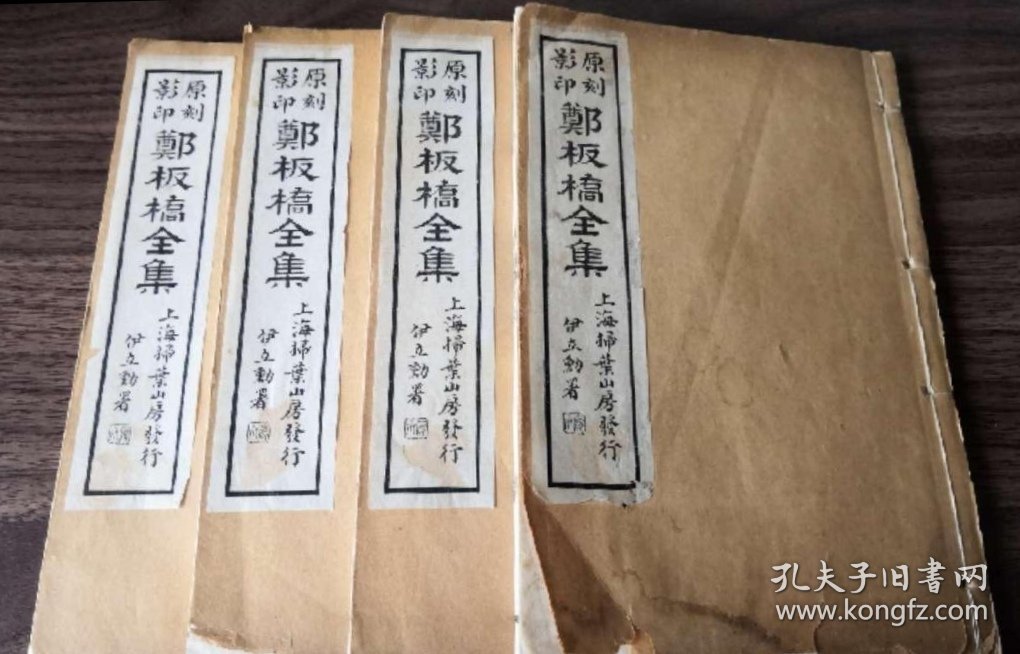 原刻
影印
鄭板橋全集
上海掃葉山房發行
伊立勳署
原刻
影印
鄭板橋全集
上海掃葉山房發行
伊立勳署
原刻
影印
鄭板橋全集
上海掃葉山房發行
伊立勳署
原刻
影印
鄭板橋全集
上海掃葉山房發行
伊立勳署
孔夫子旧書网
www.kongfz.com